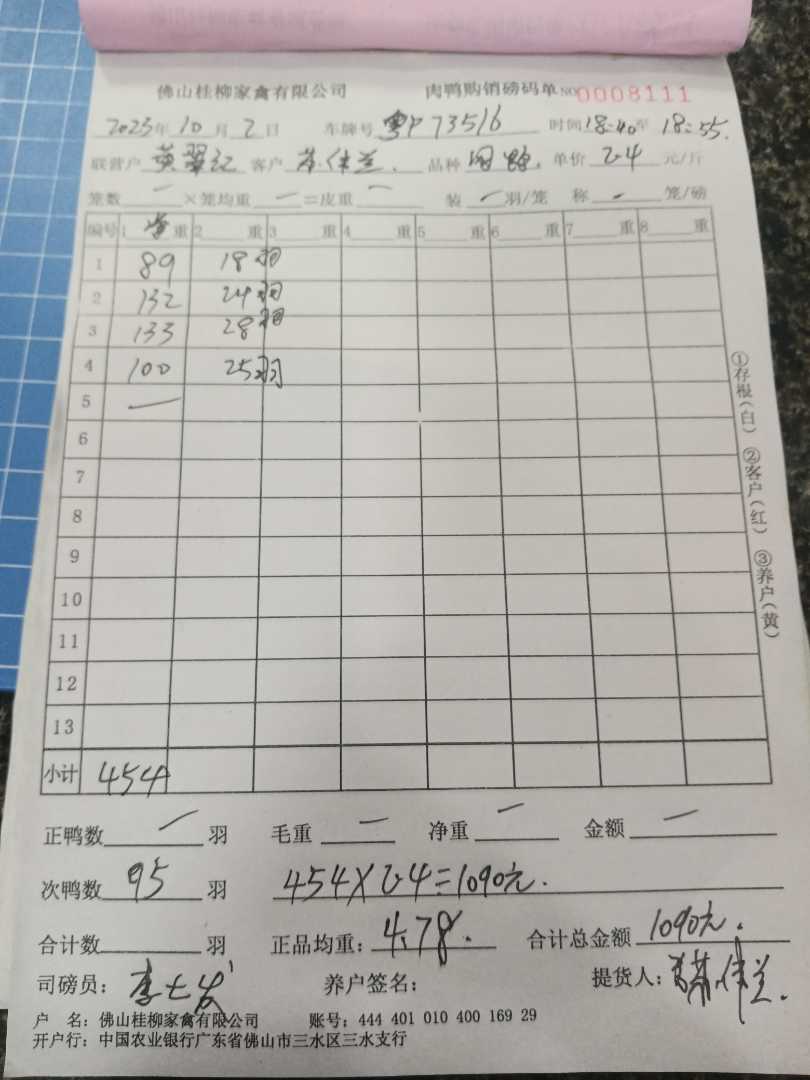 佛山桂柳家禽有限公司 肉鸭购销磅码单 NO 0008111
2023年 10月 2日 车牌号 粤P73516 时间 18:40至 18:55.
联营户 黄翠红 客户 伟兰. 品种 单价 2.4 元/斤
笼数 一 ×笼均重 一 =皮重 一 装 一 羽/笼 称 一 笼/磅
编号 1 重 2 重 3 重 4 重 5 重 6 重 7 重 8 重
1 89 18羽
2 132 24羽
3 133 28羽
4 100 25羽
5 一
6
7
8
9
10
11
12
13
小计 454
①存根(白) ②客户(红) ③养户(黄)
正鸭数 一 羽 毛重 一 净重 一 金额 一
次鸭数 95 羽 454×2.4=1090元.
合计数 羽 正品均重: 4.78. 合计总金额 1090元.
司磅员: 李七发 养户签名: 提货人: 伟兰.
户 名: 佛山桂柳家禽有限公司 账号: 444 401 010 400 169 29
开户行: 中国农业银行广东省佛山市三水区三水支行